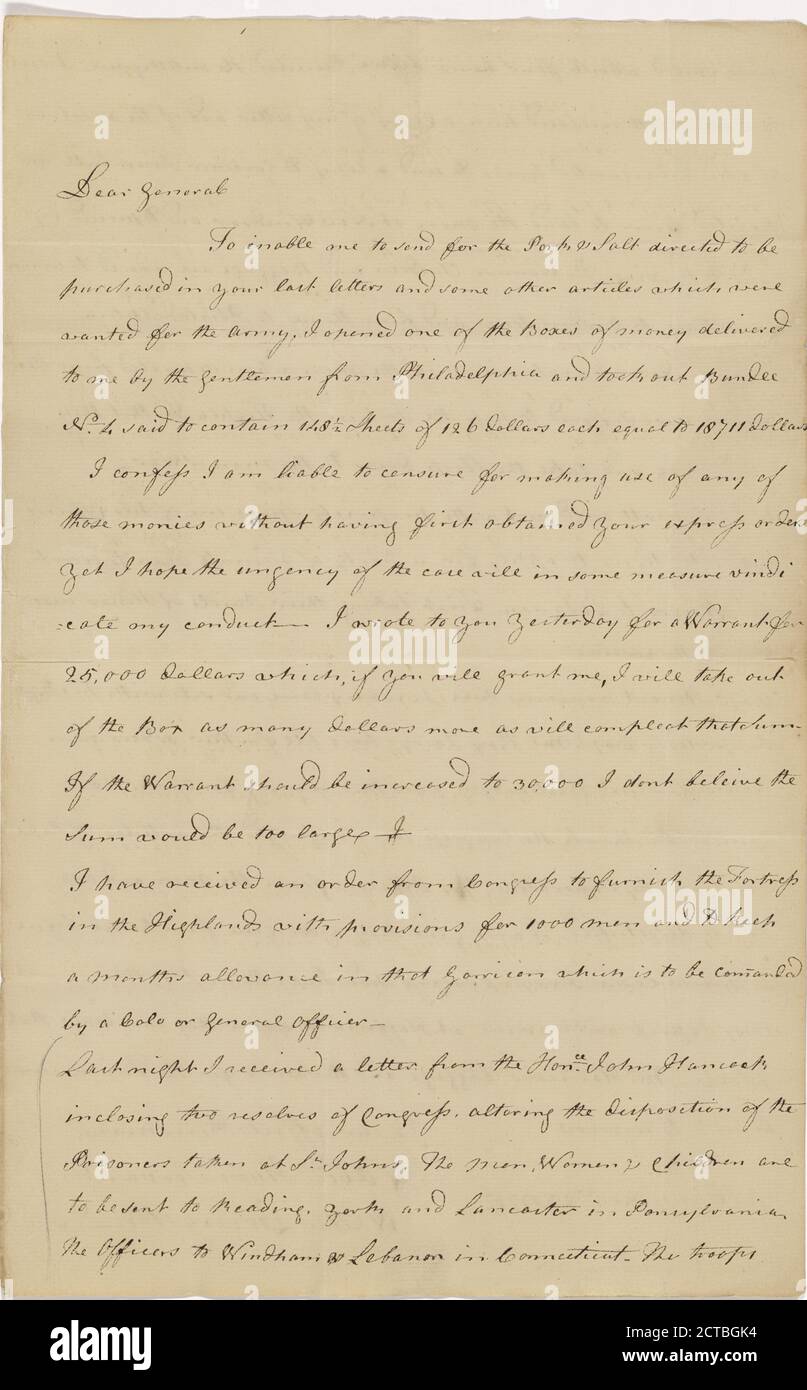 Dear General
To inable me to send for the Pork & Salt directed to be
purchased in your last letters and some other articles which were
wanted for the army, I opened one of the Boxes of money delivered
to me by the gentlemen from Philadelphia and took out Bundle
No. 4 said to contain 148½ Sheets of 126 dollars each equal to 18711 dollars
I confess I am liable to censure for making use of any of
those monies without having first obtained your express orders
yet I hope the urgency of the case will in some measure vindi
=cate my conduct— I wrote to you yesterday for a Warrant for
25,000 dollars which, if you will grant me, I will take out
of the Box as many dollars more as will compleat that Sum—
If the Warrant should be increased to 30,000 I dont beleive the
Sum would be too large—
I have received an order from Congress to furnish the Fortress
in the Highlands with provisions for 1000 men and to keep
a months allowance in that Garrison which is to be comanded
by a Colo or General Officer—
Last night I received a letter from the Honce. John Hancock
inclosing two resolves of Congress, altering the disposition of the
Prisoners taken at St. Johns, The Men, Women & Children are
to be sent to Reading, York and Lancaster in Pensylvania,
The Officers to Windham & Lebanon in Connecticut— The troops
alamy
Image ID: 2CTBGK4
www.alamy.com